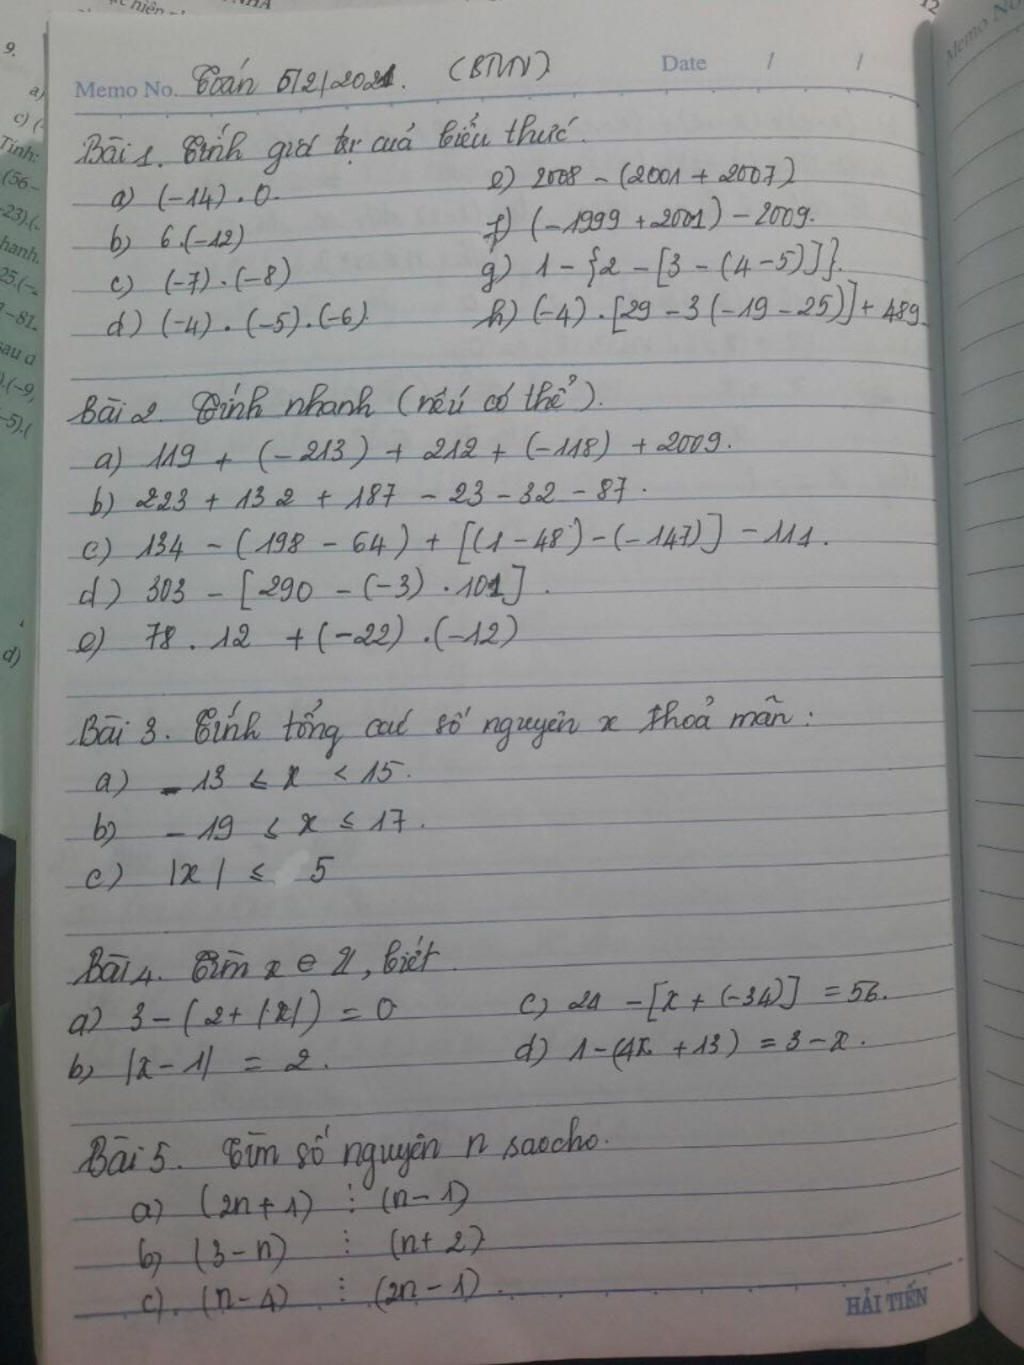 9.
a)
c) (
Tính:
(56-
-23).(-
hanh.
25.(-
-81.
sau đ
).(-9,
-5).(
d)
12
Memo No. Toán 5/2/2021. (BTVN) Date / /
Bài 1. Tính giá trị của biểu thức.
a) (-14) . 0.
b) 6.(-12)
c) (-7) . (-8)
d) (-4) . (-5) . (-6)
e) 2008 - (2001 + 2007)
f) (-1999 + 2001) - 2009.
g) 1 - {2 - [3 - (4-5)]}.
h) (-4) . [29 - 3(-19 - 25)] + 489
Bài 2. Tính nhanh (nếu có thể).
a) 119 + (-213) + 212 + (-118) + 2009.
b) 223 + 132 + 187 - 23 - 32 - 87.
c) 134 - (198 - 64) + [(1 - 48) - (-147)] - 111.
d) 303 - [290 - (-3) . 101].
e) 78 . 12 + (-22) . (-12)
Bài 3. Tính tổng các số nguyên x thoả mãn:
a) -13 ≤ x < 15.
b) -19 ≤ x ≤ 17.
c) |x| ≤ 5
Bài 4. Tìm x ∈ Z, biết
a) 3 - (2 + |x|) = 0
b) |x - 1| = 2.
c) 21 - [x + (-34)] = 56.
d) 1 - (4x + 13) = 3 - x.
Bài 5. Tìm số nguyên n sao cho.
a) (2n + 1) ⋮ (n - 1)
b) (3 - n) ⋮ (n + 2)
c). (n - 4) ⋮ (2n - 1).
HẢI TIẾN
Memo No